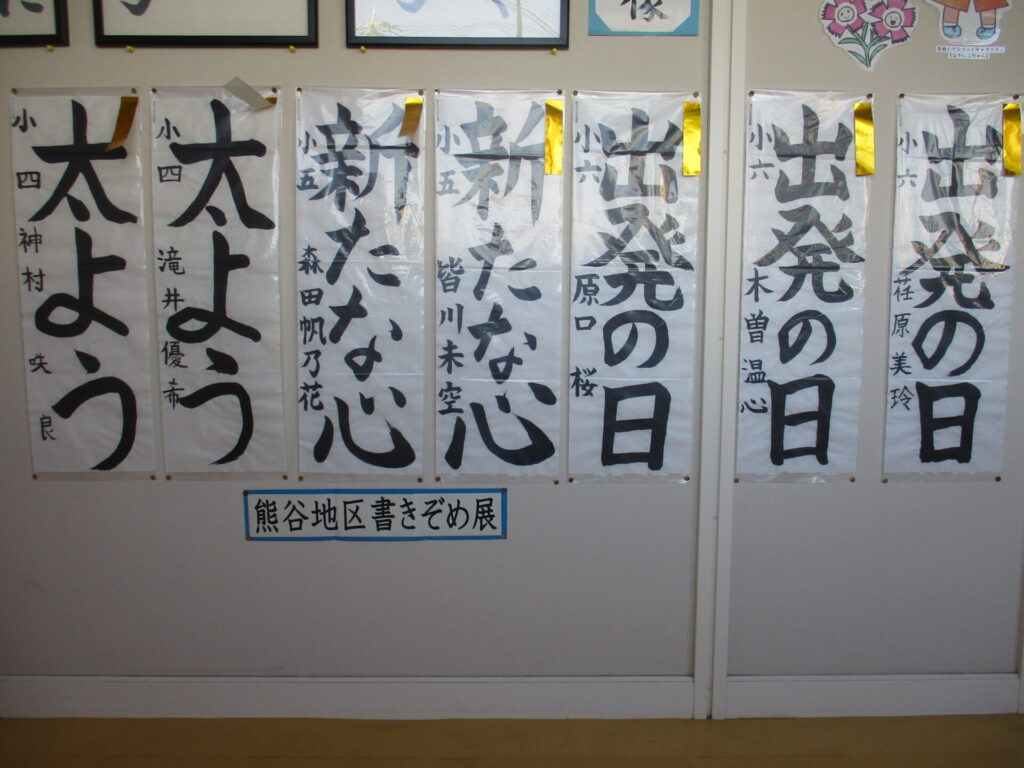 太よう
小四 神村 咲良
太よう
小四 滝井優希
新たな心
小五 森田帆乃花
新たな心
小五 皆川未空
出発の日
小六 原口 桜
出発の日
小六 木曽温心
出発の日
小六 荏原美玲
熊谷地区書きぞめ展